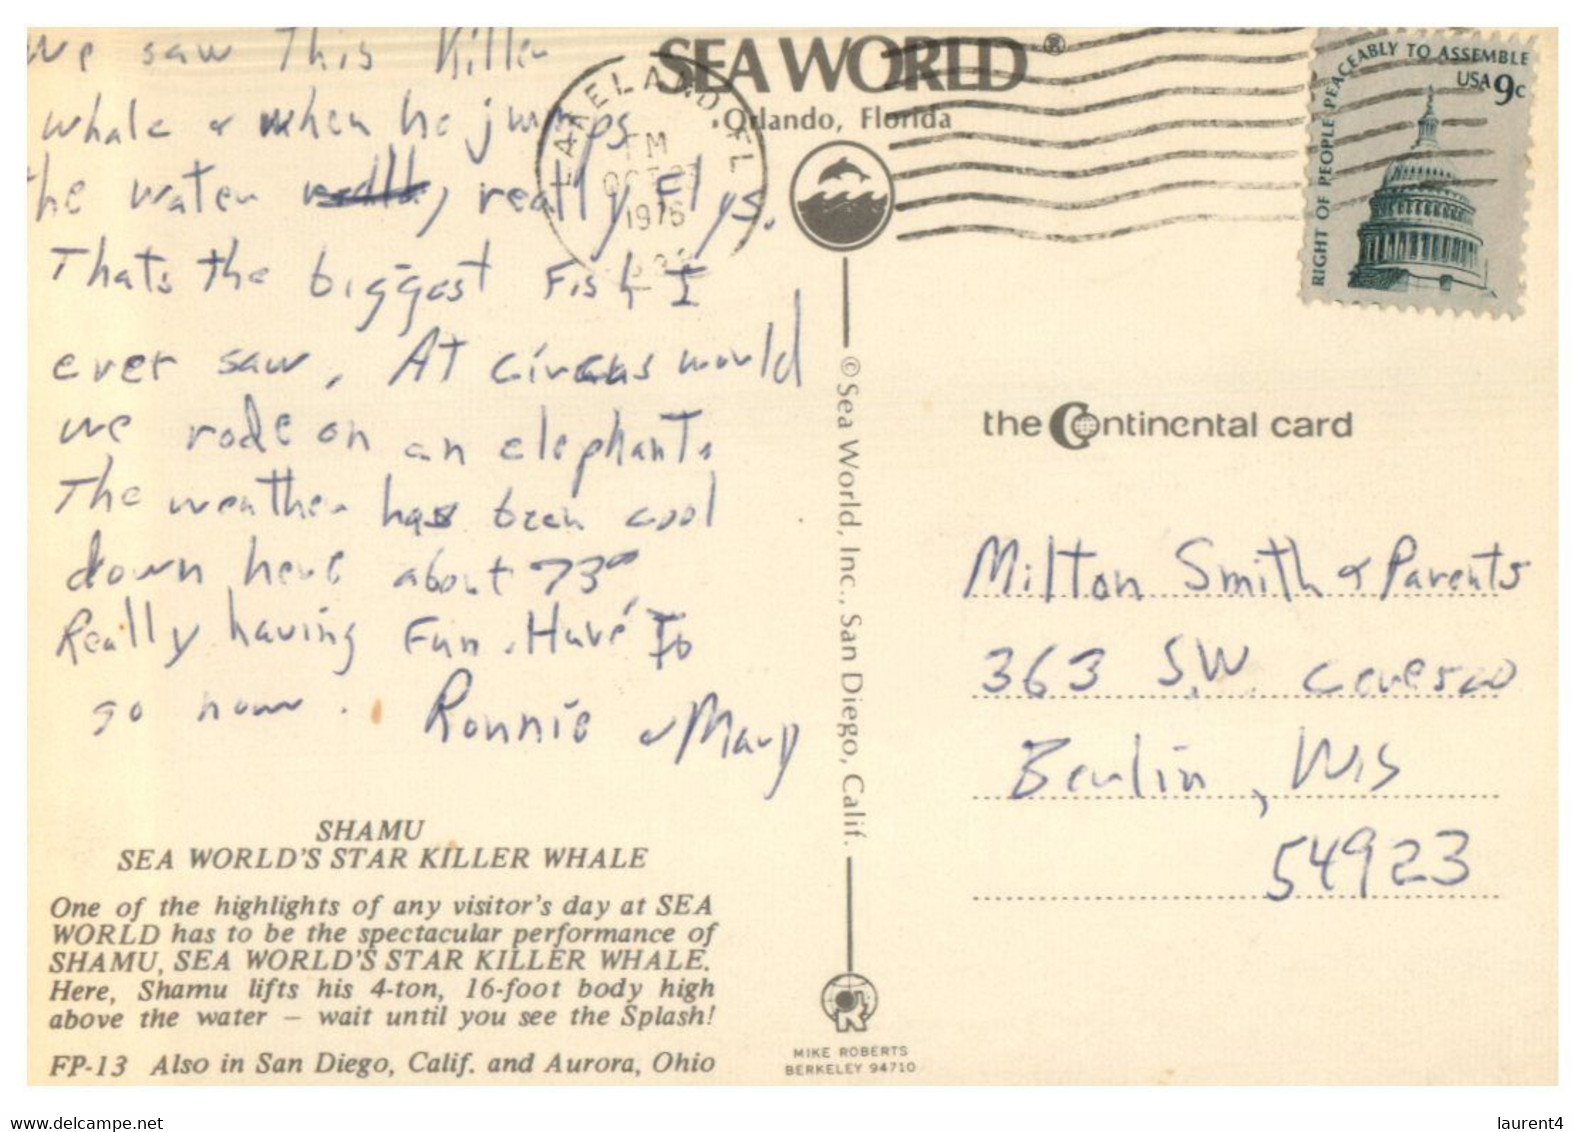 We saw This Killer
whale & when he jumps
the water really flys.
Thats the biggest Fish I
ever saw. At circus world
we rode on an elephant.
The weather has been cool
down here about 73°
Really having Fun. Have To
go now. Ronnie & Mary
SHAMU
SEA WORLD'S STAR KILLER WHALE
One of the highlights of any visitor's day at SEA
WORLD has to be the spectacular performance of
SHAMU, SEA WORLD'S STAR KILLER WHALE.
Here, Shamu lifts his 4-ton, 16-foot body high
above the water – wait until you see the Splash!
FP-13 Also in San Diego, Calif. and Aurora, Ohio
SEA WORLD®
Orlando, Florida
PM
OCT
1976
© Sea World, Inc., San Diego, Calif.
MIKE ROBERTS
BERKELEY 94710
RIGHT OF PEOPLE PEACEABLY TO ASSEMBLE
USA 9c
the Continental card
Milton Smith & Parents
363 S.W.
Berlin, Wis
54923
we saw delcampe.net
laurent4